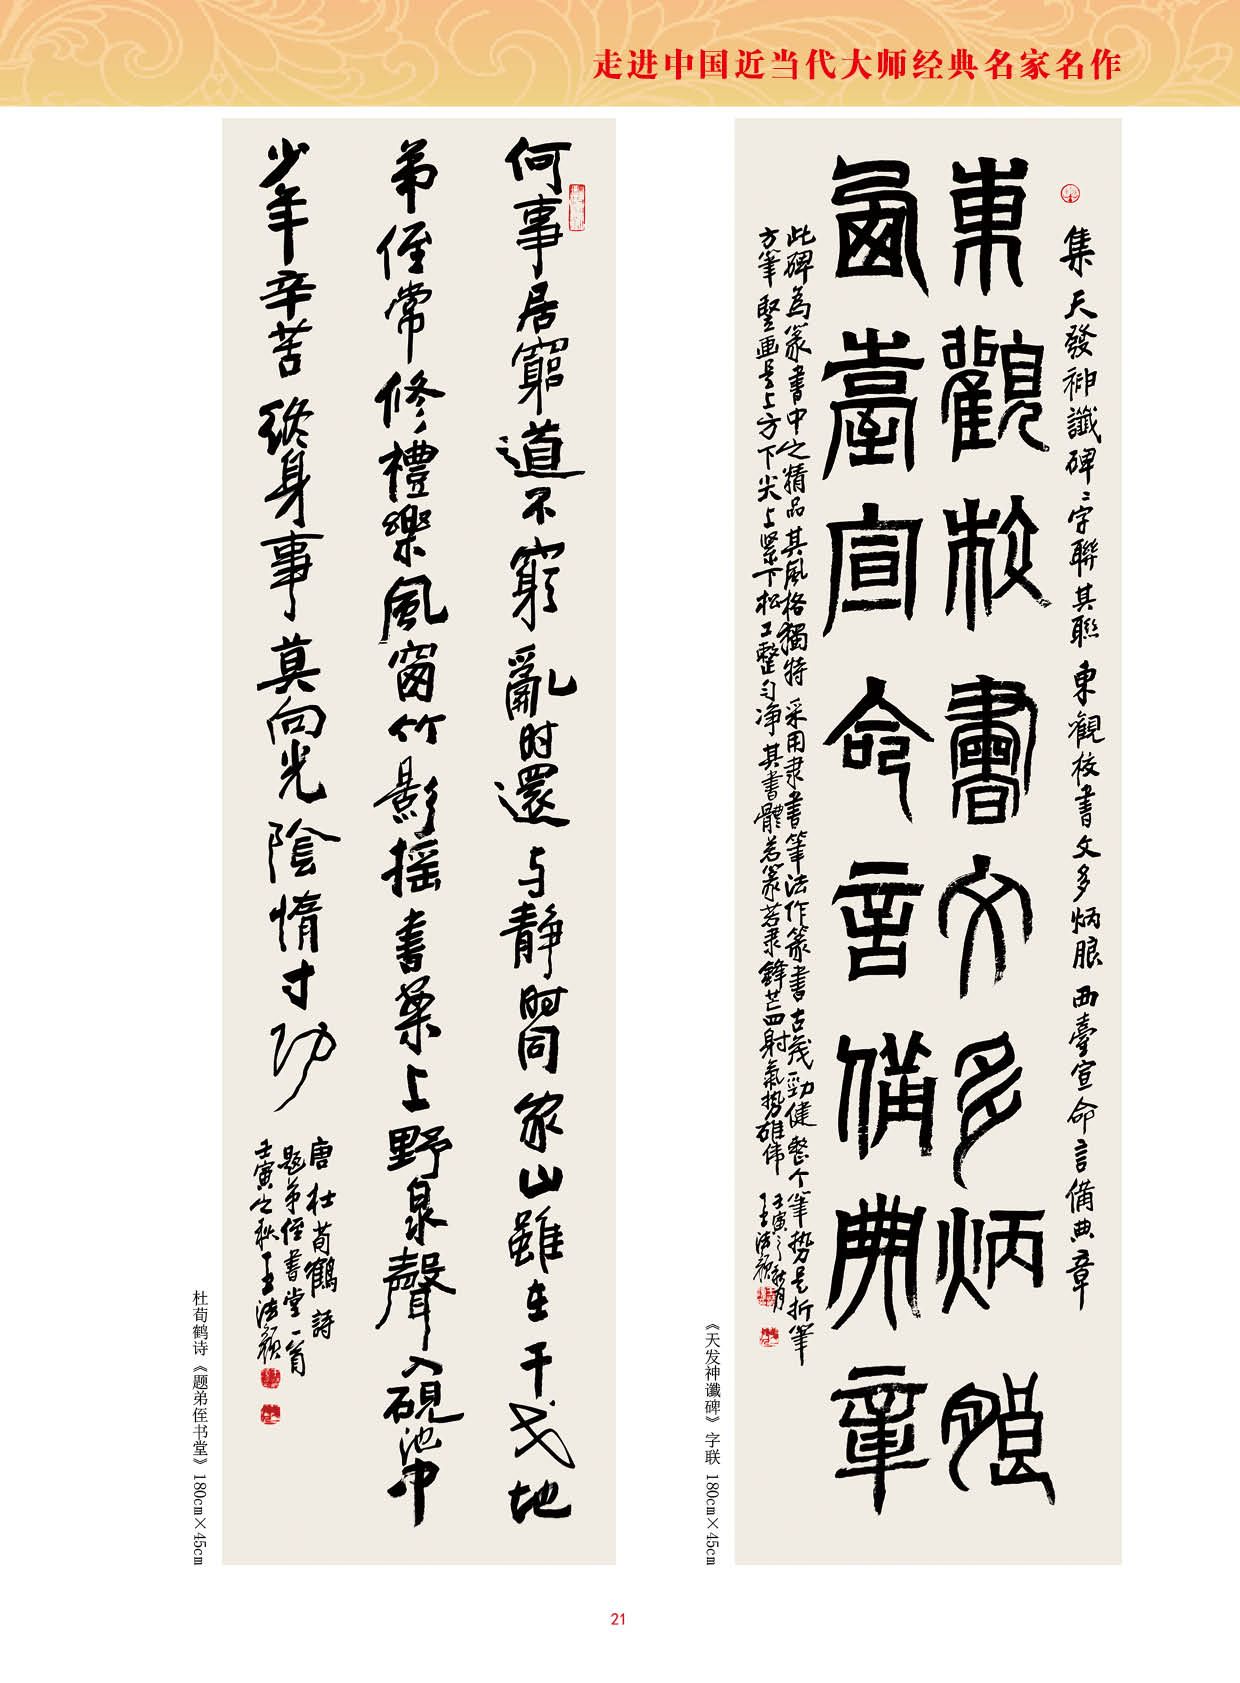 走进中国近当代大师经典名家名作
集天發神讖碑〻字聯其聯東觀校書文多炳朖西臺宣命言備典章
東觀校書文多炳朖
西臺宣命言備典章
此碑為篆書中之精品其風格獨特采用隶書筆法作篆書古茂勁健整个筆势是折筆
方筆竪画是上方下尖上緊下松工整匀净其書體若篆若隶鋒芒四射氣势雄伟
壬寅之秋月
王法颖
《天发神谶碑》字联 180cm×45cm
何事居窮道不窮亂时還与静時同家山雖在干戈地
弟侄常修禮樂風窗竹影摇書案上野泉聲入硯池中
少年辛苦終身事莫向光陰惰寸功
唐杜荀鶴詩
题弟侄書堂一首
壬寅之秋王法颖
杜荀鹤诗《题弟侄书堂》180cm×45cm
21